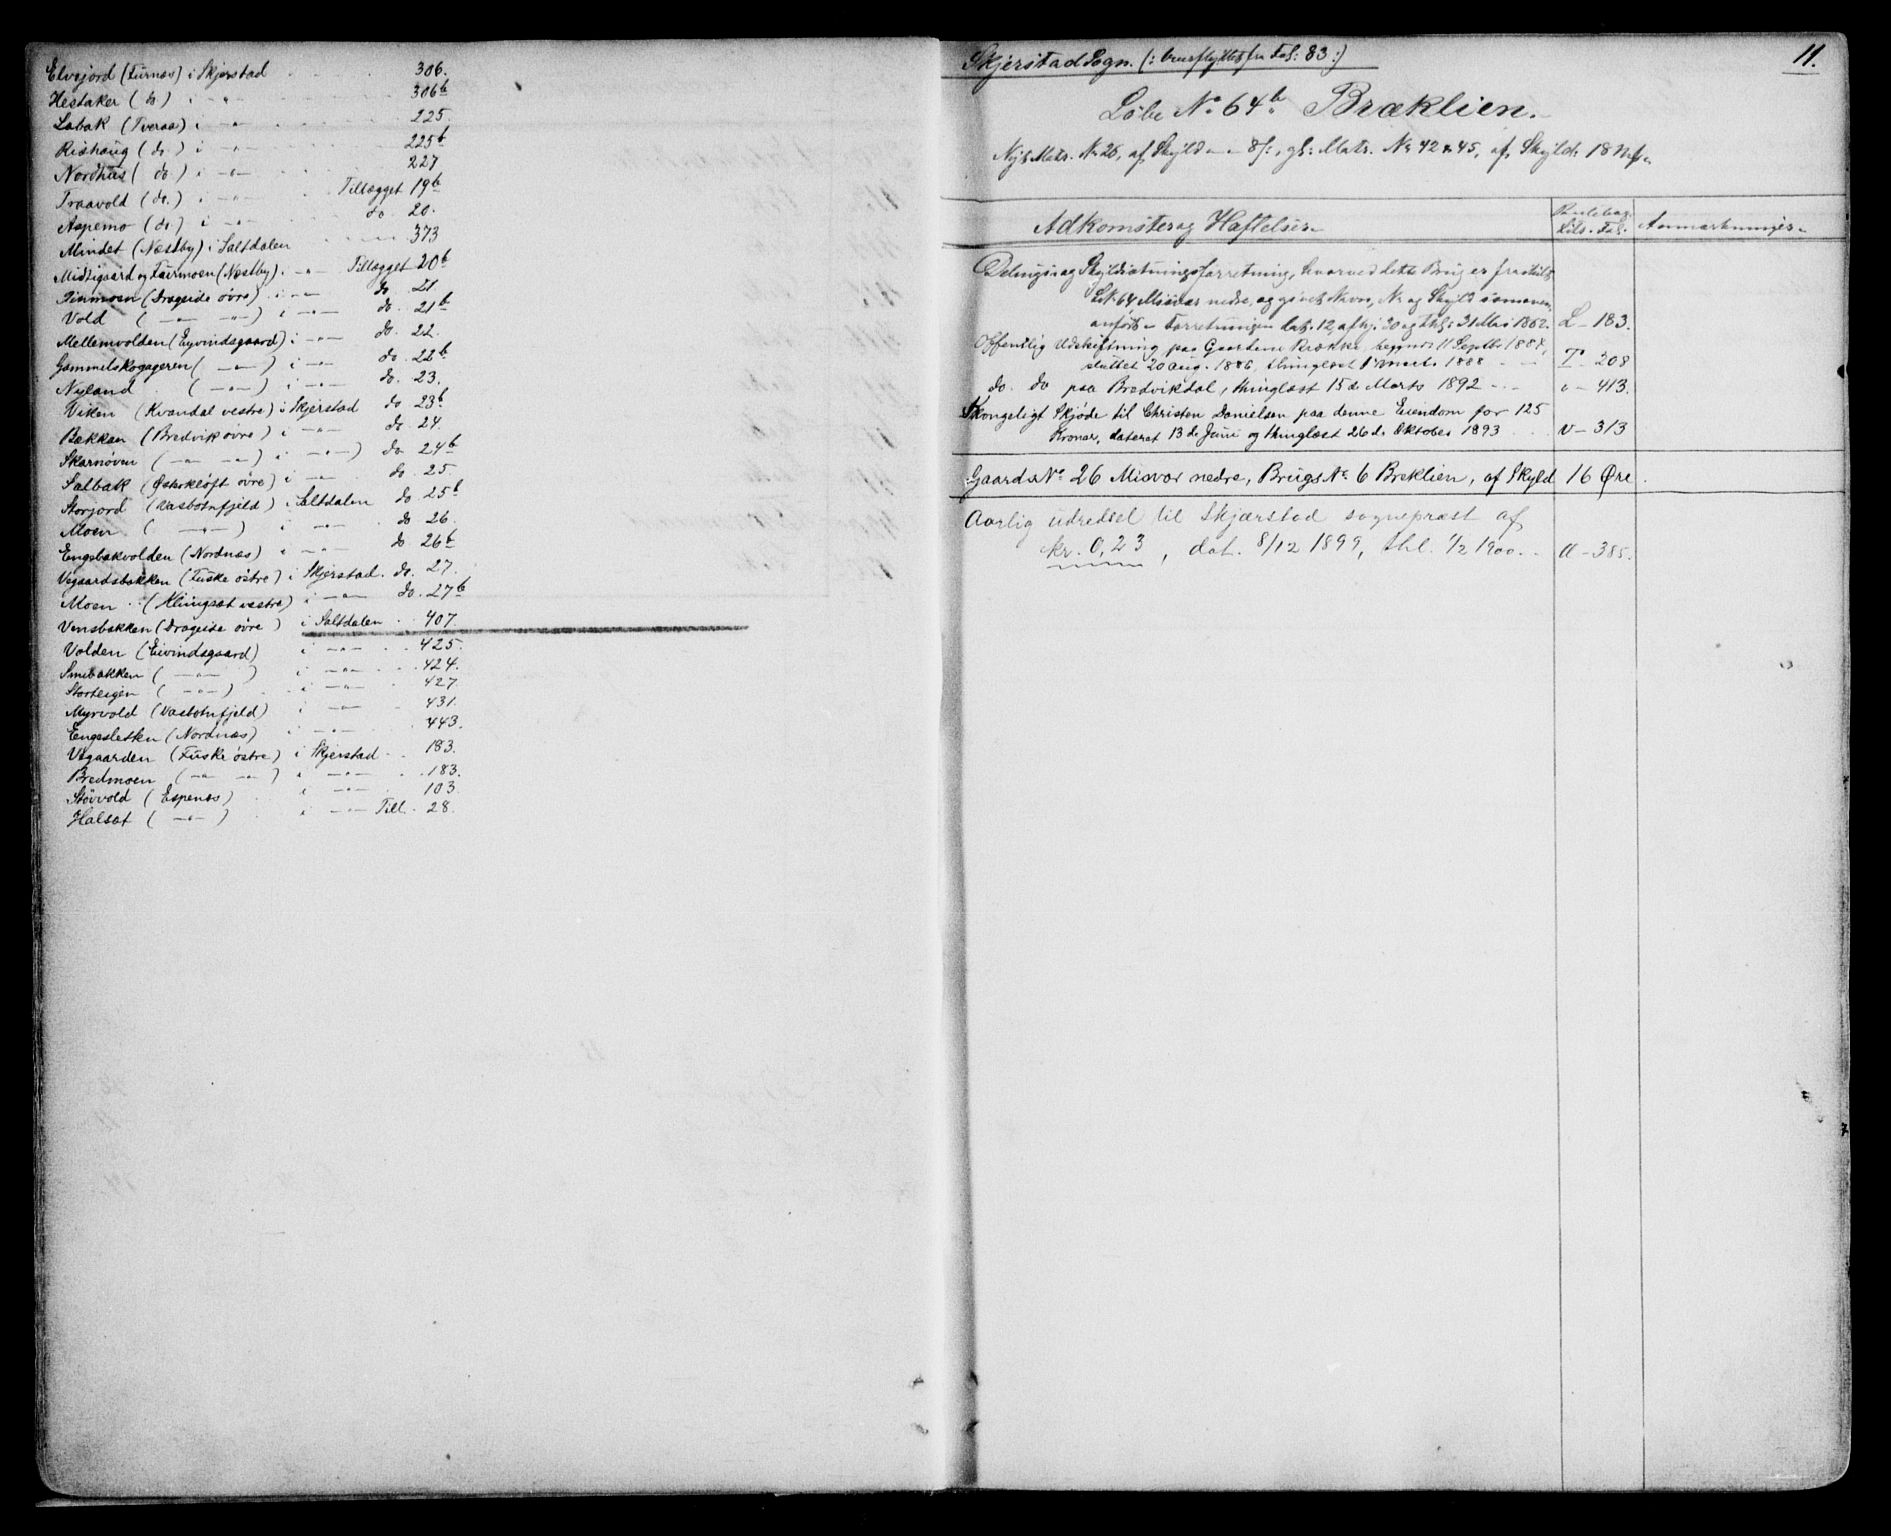 Elvejord (Furnæs) i Skjerstad 306.
Hestaker (do) i -"- 306b
Labak (Tveraa) i -"- 225.
Rishaug (do.) i -"- 225b
Nordhus (do.) i -"- 227
Traavold (do.) i -"- Tillægget 19b
Aspemo (do.) i -"- do. 20.
Mindet (Næstby) i Saltdalen 373
Midtigaard og Furmoen (Næstby). -"- Tillægget 20b
Finmoen (Drageide øvre) i -"- do. 21
Vold ( -"- -"- ) i -"- do. 21b
Mellemvolden (Eyvindsgaard) i -"- do. 22.
Gammelskogageren ( -"- ) i -"- do. 22b
Nyland ( -"- ) i -"- do. 23.
Viken (Kvandal vestre) i Skjerstad do 23b
Bakken (Bredvik øvre) i -"- do 24.
Skarnøven ( -"- -"- ) i -"- ) do 24b
Salbak (Østerkløft øvre) i -"- do. 25.
Storjord (Vasbotnfjeld) i Saltdalen do 25b
Moen ( -"- ) i -"- do 26.
Engebakvolden (Nordnæs) i -"- do 26b
Vegaardsbakken (Fuske østre) i Skjerstad. do. 27.
Moen (Klungsæt vestre) i -"- do. 27b
Vensbakken (Drageide øvre) i Saltdalen 407.
Volden (Eivindsgaard) i -"- 425.
Smebakken ( -"- ) i -"- 424.
Storteigen ( -"- ) i -"- 427.
Myrvold (Vasbotnfjeld) i -"- 431.
Engesletten (Nordnæs) i -"- 443.
Vegaarden (Fuske østre) i Skjerstad 183.
Bredmoen ( -"- -"- ) i -"- 183.
Støvvold (Espenæs) i -"- 103.
Halsæt ( -"- ) i -"- Till. 28.
Skjerstad Sogn. (: overflyttet fra Fol: 83 :)
11.
Løbe No 64b Bræklien.
Nyt Matr. No 26, af Skyld - - 8 s:, gl: Matr. No 42 & 45, af Skyld: 18 Mk
Adkomster og Hæftelser Pantebog Lits. Fol. Anmærkninger
Delings og Skyldsætningsforretning, hvorved dette Brug er fraskilt
L.N. 64 Misvær nedre, og givet Navn, No og Skyld som oven
anført. Forretningen dat. 12, afhj. 20 og thl: 31 Mai 1862. L - 183.
Offentlig Udskiftning paa Gaardene Brække, begyndt 11 Septbr 1884,
sluttet 20 aug. 1886, thinglæst 1 marts 1888 T - 208
do. do paa Bredvikdal, thinglæst 15de Marts 1892 " - 413.
Kongeligt Skjøde til Christen Danielsen paa denne Eiendom for 125
Kroner, dateret 13de Juni og thinglæst 26de Oktober 1893 V - 313
Gaards No 26 Misvær nedre, Brugs No 6 Breklien, af Skyld 16 Øre.
Aarlig udredsel til Skjærstad sogneprest af
kr. 0,23, dat. 8/12 1899, thl. 1/2 1900. Æ - 385.